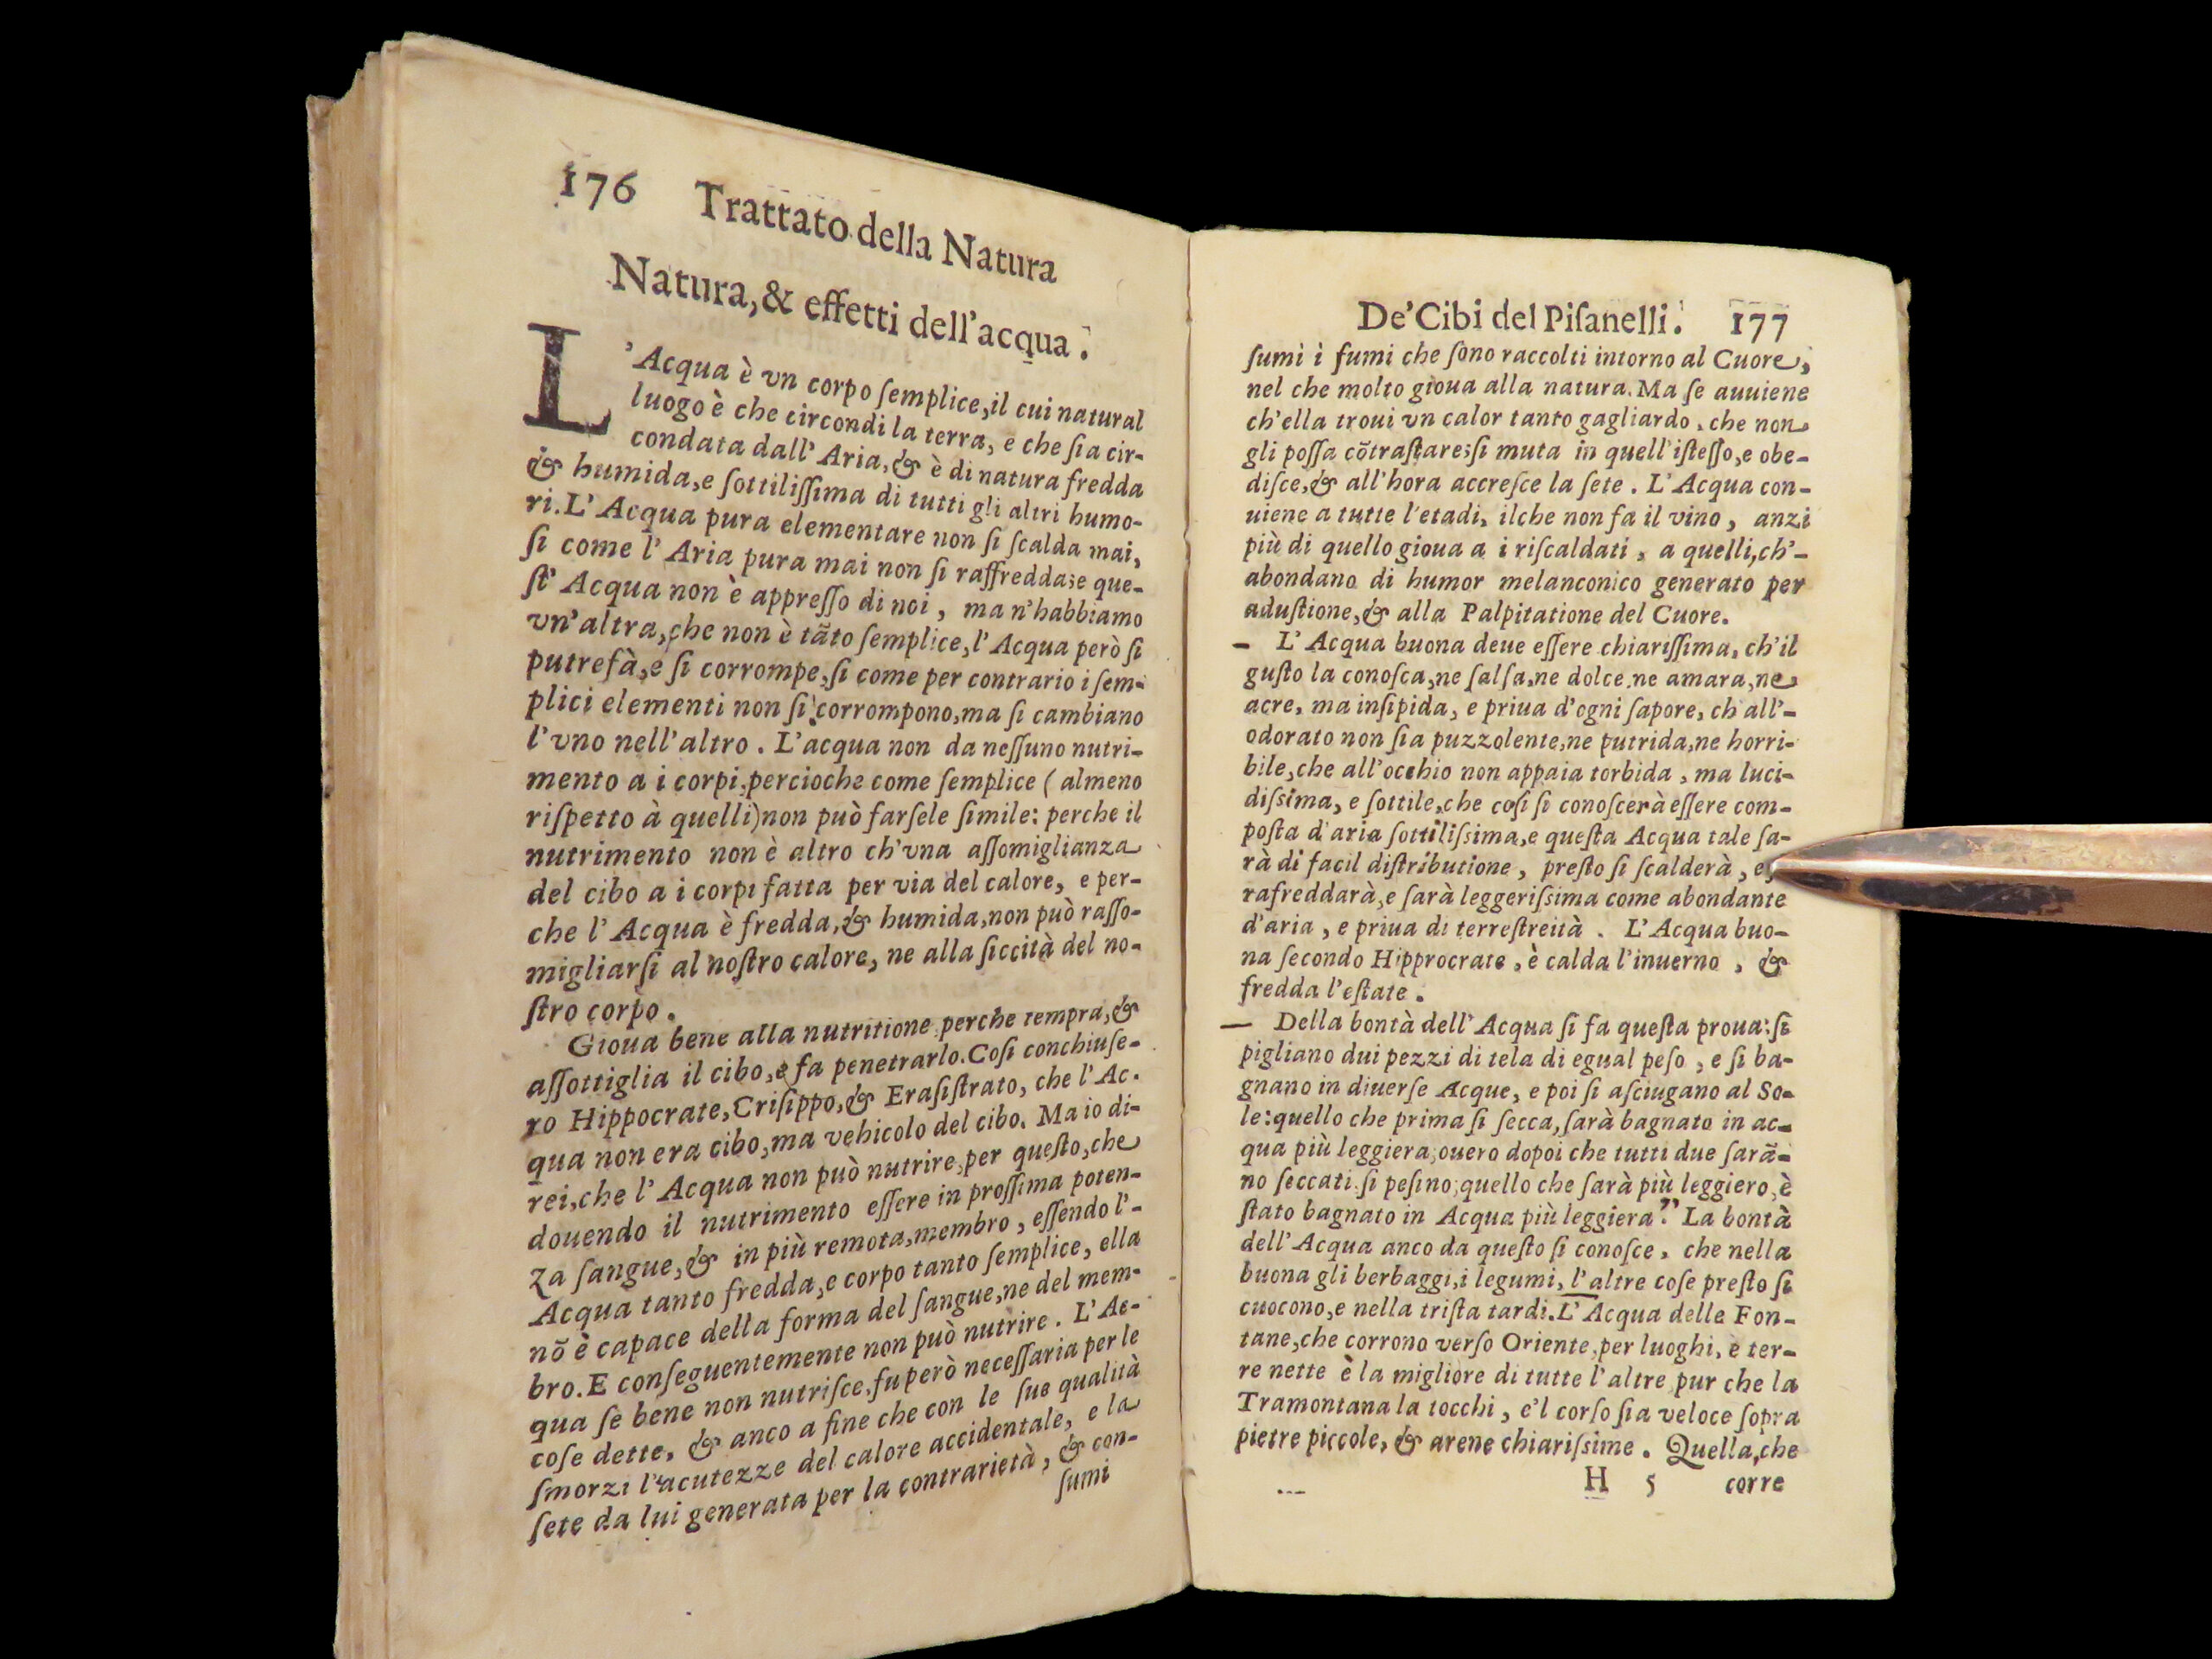 176 Trattato della Natura
Natura, & effetti dell'acqua.
L'Acqua è vn corpo ſemplice, il cui natural
luogo è che circondi la terra, e che ſia cir-
condata dall' Aria, & è di natura fredda
& humida, e ſottiliſſima di tutti gli altri humo-
ri. L' Acqua pura elementare non ſi ſcalda mai,
ſi come l' Aria pura mai non ſi raffredda; e que-
ſt' Acqua non è appreſſo di noi, ma n'habbiamo
vn'altra, che non è tãto ſemplice, l' Acqua però ſi
putrefà, e ſi corrompe, ſi come per contrario i ſem-
plici elementi non ſi corrompono, ma ſi cambiano
l'vno nell'altro. L'acqua non da neſſuno nutri-
mento a i corpi, percioche come ſemplice (almeno
riſpetto à quelli) non può farſele ſimile: perche il
nutrimento non è altro ch'vna aſſomiglianza
del cibo a i corpi fatta per via del calore, e per-
che l' Acqua è fredda, & humida, non può raſſo-
migliarſi al noſtro calore, ne alla ſiccità del no-
ſtro corpo.
Gioua bene alla nutritione perche tempra, &
aſſottiglia il cibo, e fa penetrarlo. Coſi conchiuſe-
ro Hippocrate, Criſippo, & Eraſiſtrato, che l' Ac-
qua non era cibo, ma vehicolo del cibo. Ma io di-
rei, che l' Acqua non può nutrire, per queſto, che
douendo il nutrimento eſſere in proſſima poten-
za ſangue, & in più remota, membro, eſſendo l'-
Acqua tanto fredda, e corpo tanto ſemplice, ella
nõ è capace della forma del ſangue, ne del mem-
bro. E conſeguentemente non può nutrire. L' Ac-
qua ſe bene non nutriſce, fu però neceſſaria per le
coſe dette, & anco a fine che con le ſue qualità
ſmorzi l'acutezze del calore accidentale, e la
ſete da lui generata per la contrarietà, & con-
ſumi
De' Cibi del Piſanelli. 177
ſumi i fumi che ſono raccolti intorno al Cuore,
nel che molto gioua alla natura. Ma ſe auuiene
ch'ella troui vn calor tanto gagliardo, che non
gli poſſa cõtraſtare; ſi muta in quell'iſteſſo, e obe-
diſce, & all'hora accreſce la ſete. L' Acqua con-
uiene a tutte l'etadi, ilche non fa il vino, anzi
più di quello gioua a i riſcaldati, a quelli, ch'-
abondano di humor melanconico generato per
aduſtione, & alla Palpitatione del Cuore.
L' Acqua buona deue eſſere chiariſſima, ch'il
guſto la conoſca, ne ſalſa, ne dolce, ne amara, ne
acre, ma inſipida, e priua d'ogni ſapore, ch'all'-
odorato non ſia puzzolente, ne putrida, ne horri-
bile, che all'occhio non appaia torbida, ma luci-
diſsima, e ſottile, che coſi ſi conoſcerà eſſere com-
poſta d'aria ſottiliſsima, e queſta Acqua tale ſa-
rà di facil diſtributione, preſto ſi ſcalderà, e,
rafreddarà, e ſarà leggeriſsima come abondante
d'aria, e priua di terreſtreità. L' Acqua buo-
na ſecondo Hipprocrate, è calda l'inuerno, &
fredda l'eſtate.
Della bontà dell' Acqua ſi fa queſta proua: ſi
pigliano dui pezzi di tela di egual peſo, e ſi ba-
gnano in diuerſe Acque, e poi ſi aſciugano al So-
le: quello che prima ſi ſecca, ſarà bagnato in ac-
qua più leggiera; ouero dopoi che tutti due ſarã-
no ſeccati, ſi peſino; quello che ſarà più leggiero, è
ſtato bagnato in Acqua più leggiera. La bontà
dell' Acqua anco da queſto ſi conoſce, che nella
buona gli herbaggi, i legumi, l'altre coſe preſto ſi
cuocono, e nella triſta tardi. L' Acqua delle Fon-
tane, che corrono verſo Oriente, per luoghi, e ter-
re nette è la migliore di tutte l'altre pur che la
Tramontana la tocchi, e'l corſo ſia veloce ſopra
pietre piccole, & arene chiariſsime. Quella, che
H 5 corre